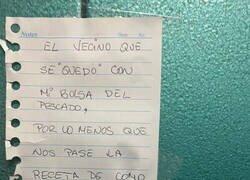 Notes
EL VECINO QUE
SE "QUEDO" CON
Mº BOLSA DEL
PESCADO,
POR LO MENOS QUE
NOS PASE LA
RECETA DE COMO